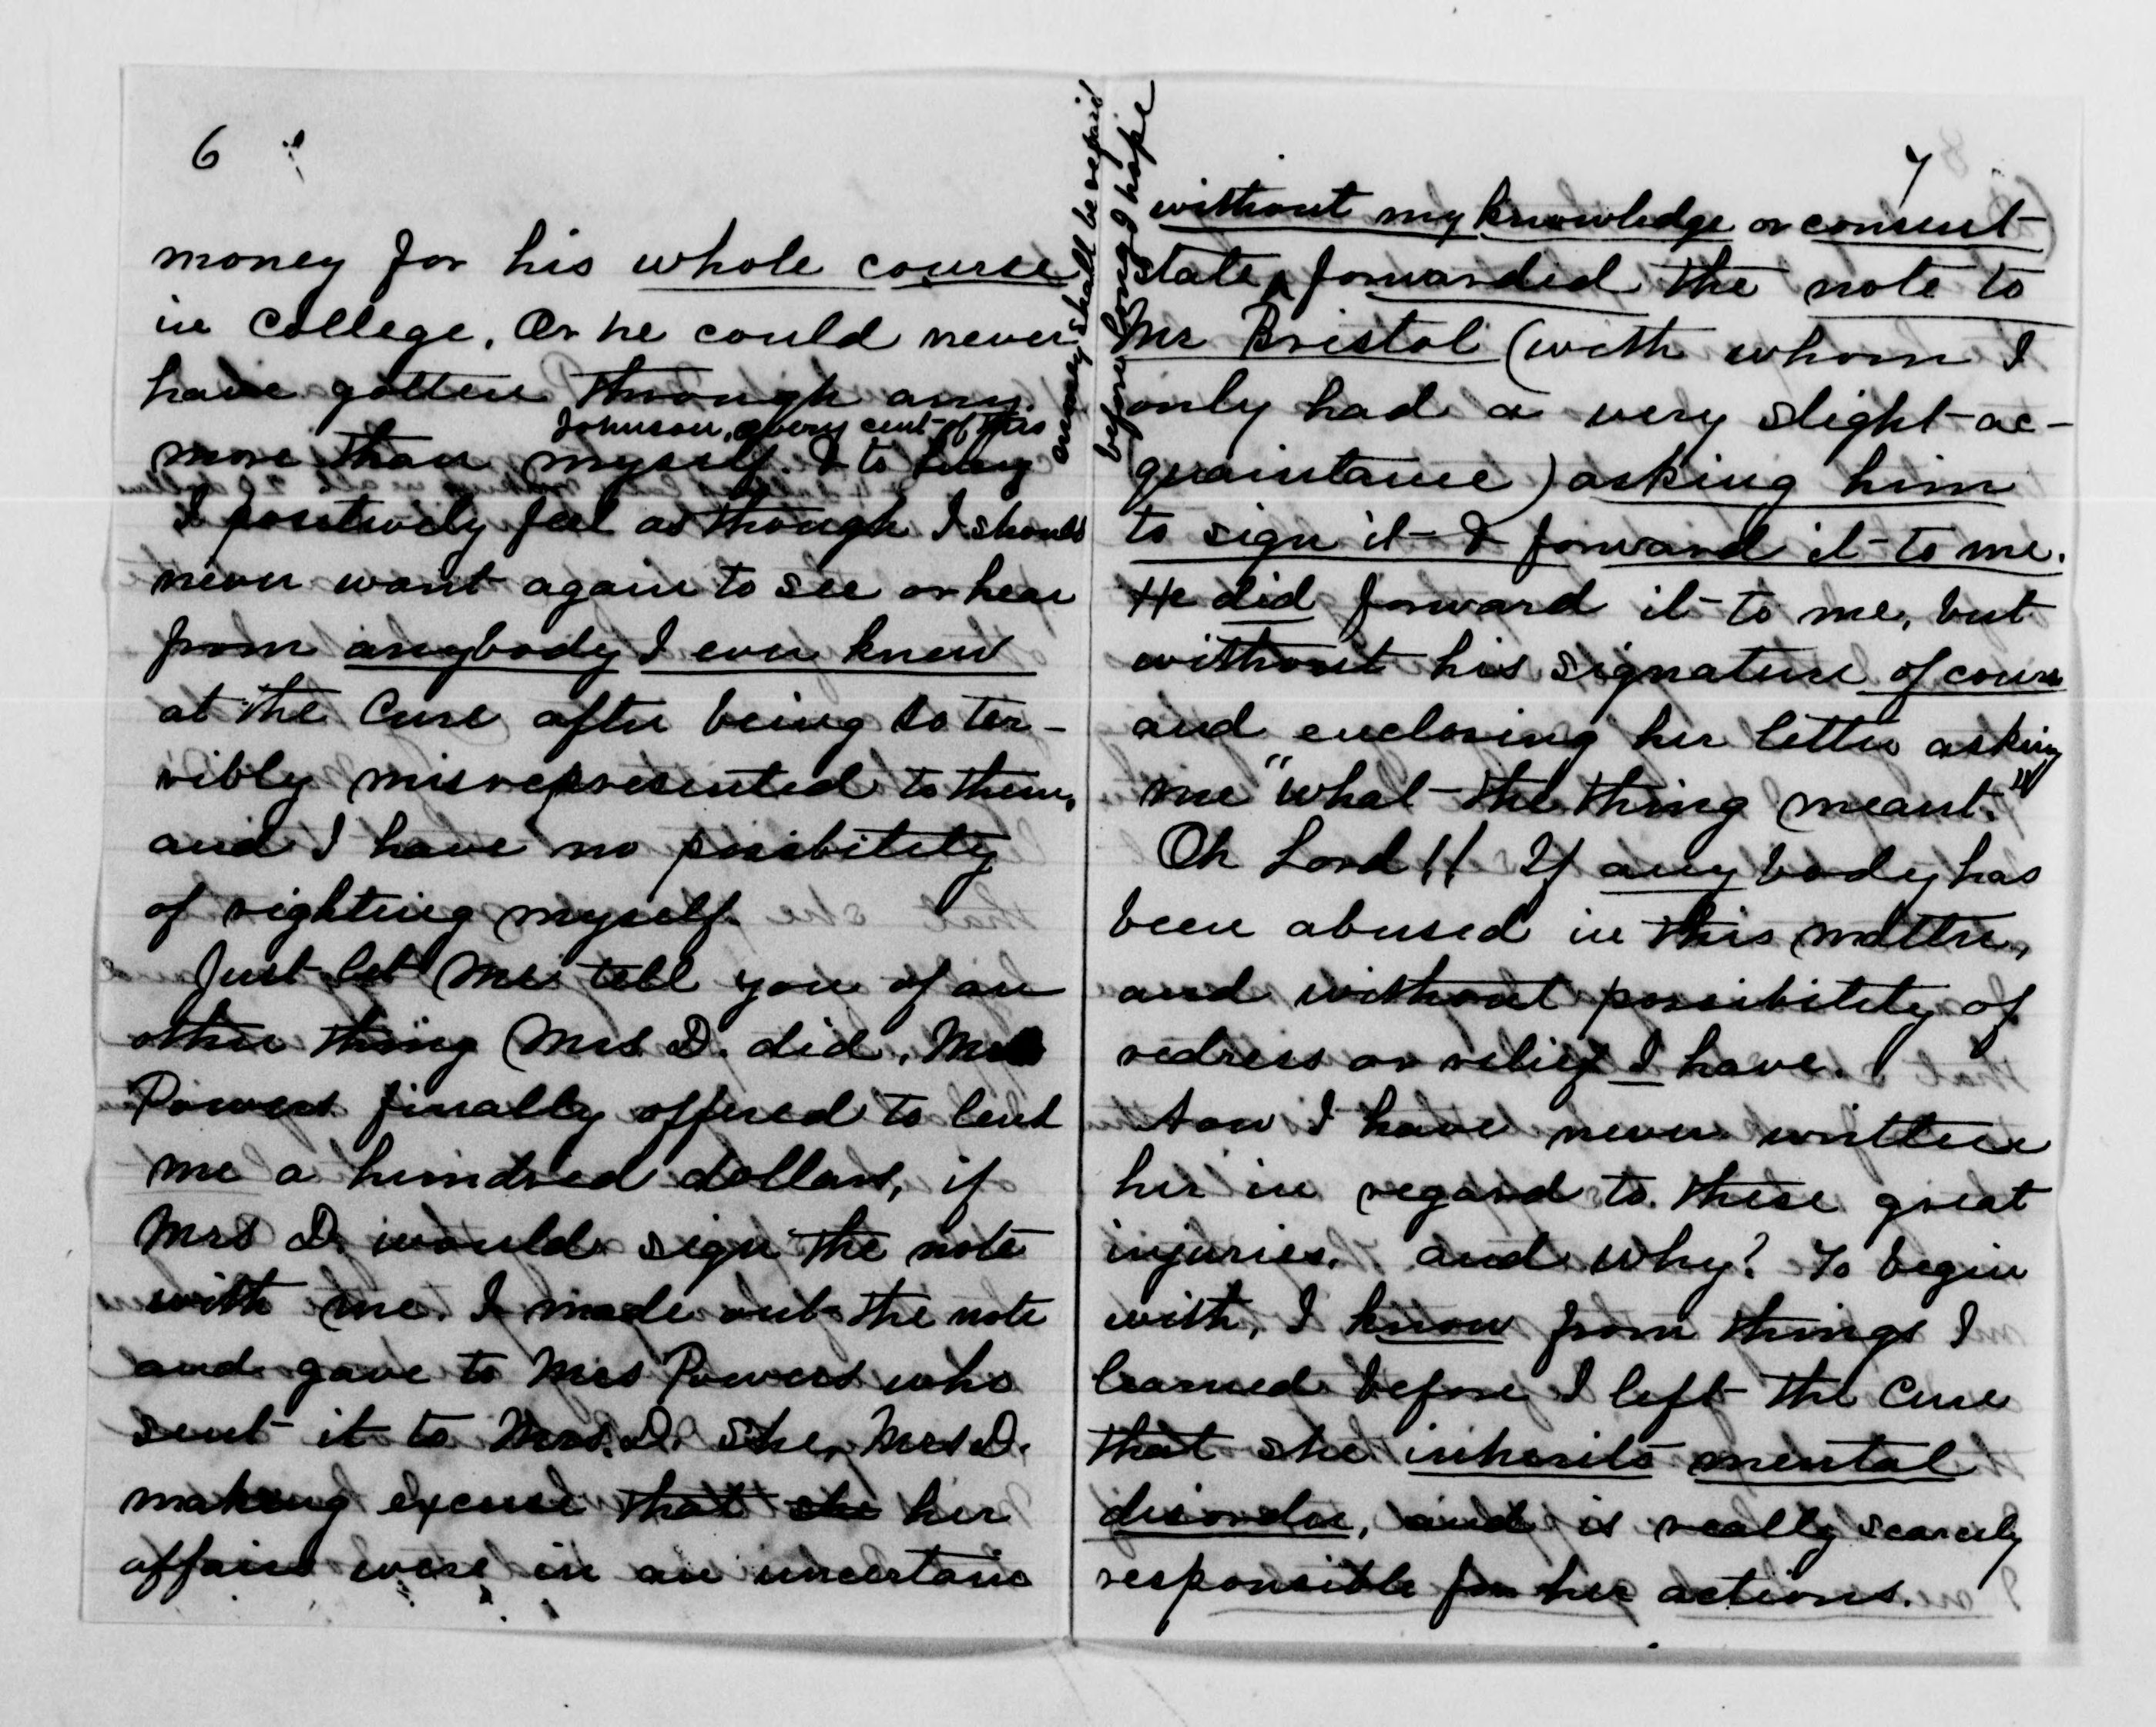 6
money for his whole course
in College. Or he could never
have gotten through any
Johnson, every cent of this
more than myself. & to Lucy
money shall be repaid
before long I hope
I positively feel as though I should
never want again to see or hear
from anybody I ever knew
at the Cure after being so ter-
ribly misrepresented to them,
and I have no possibility
of righting myself.
Just let me tell you of an
other thing Mrs D. did. Mrs
Powers finally offered to lend
me a hundred dollars, if
Mrs D. would sign the note
with me. I made out the note
and gave to Mrs Powers who
sent it to Mrs. D. She, Mrs D.
making excuse that she her
affairs were in an uncertain
7
without my knowledge or consent
state, forwarded the note to
Mr Bristol (with whom I
only had a very slight ac-
quaintance) asking him
to sign it & forward it to me.
He did forward it to me, but
without his signature of course
and enclosing her letter asking
me "what the thing meant."
Oh Lord!! If anybody has
been abused in this matter,
and without possibility of
redress or relief I have.
Now I have never written
her in regard to these great
injuries. and why? To begin
with, I know from things I
learned before I left the Cure
that she inherits mental
disorder, and is really scarcely
responsible for her actions.